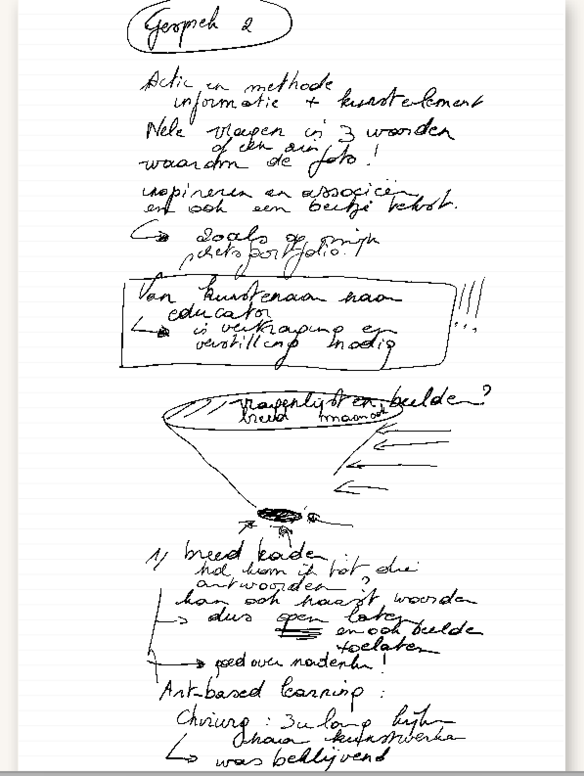 Gesprek 2
Actie en methode
informatie + kunstelement
Nele vragen in 3 woorden
of een
waarom de foto!
inspireren en associëren
en ook een beetje tekst.
↳ zoals op mijn
schetsportfolio!
Van kunstenaar naar
educator
↳ is vertraging en
verstilling nodig
!!!
vragenlijst en beelden?
breed
1/ breed kader
hoe kom ik tot die
antwoorden?
kan ook naast woorden
→ dus open laten
en ook beelden
toelaten
→ goed over nadenken!
Art-based learning :
Chirurg : 3u lang kijken
naar kunstwerken
↳ was beklijvend